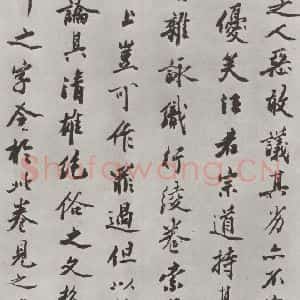 之人惡敢議其方亦不
優美江君宗道持其
雜詠織行綾卷索
上豈可作罪過但以
論具清雄絕俗之文
之字今於此卷見之
Shufawang.CN